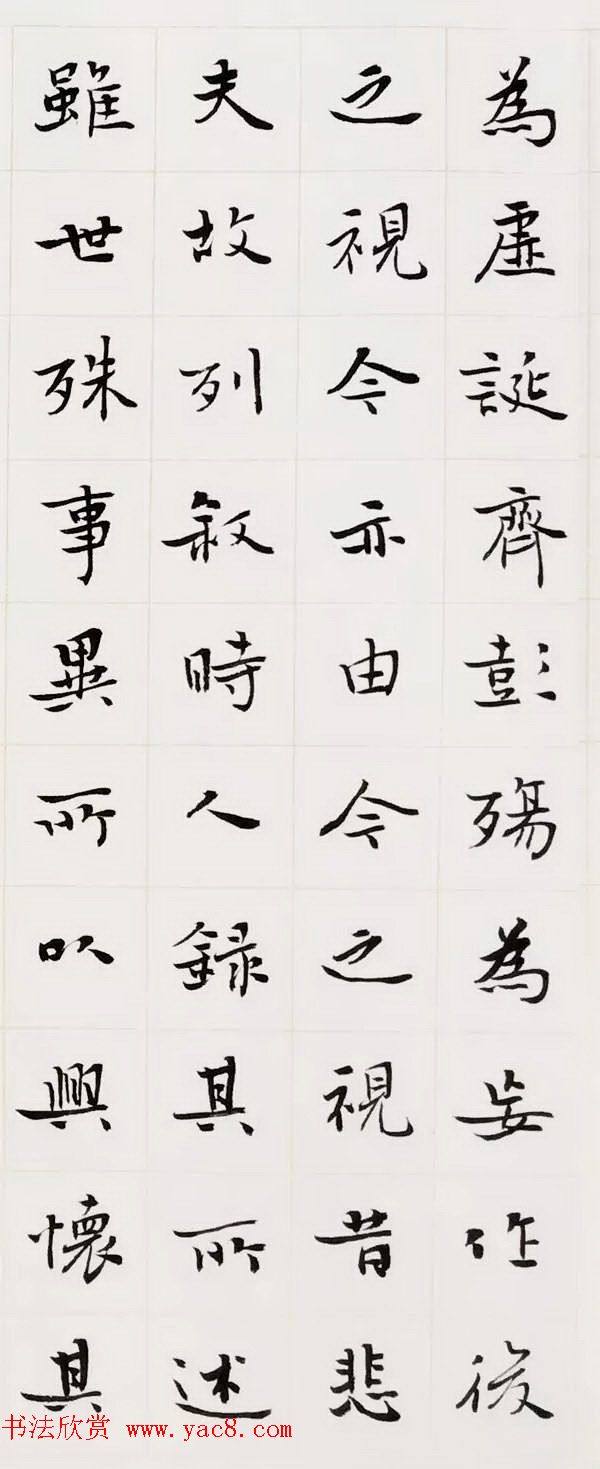 為虛誕齊彭殤為妄作後
之視今亦由今之視昔悲
夫故列敘時人錄其所述
雖世殊事異所以興懷其
书法欣赏 www.yac8.com